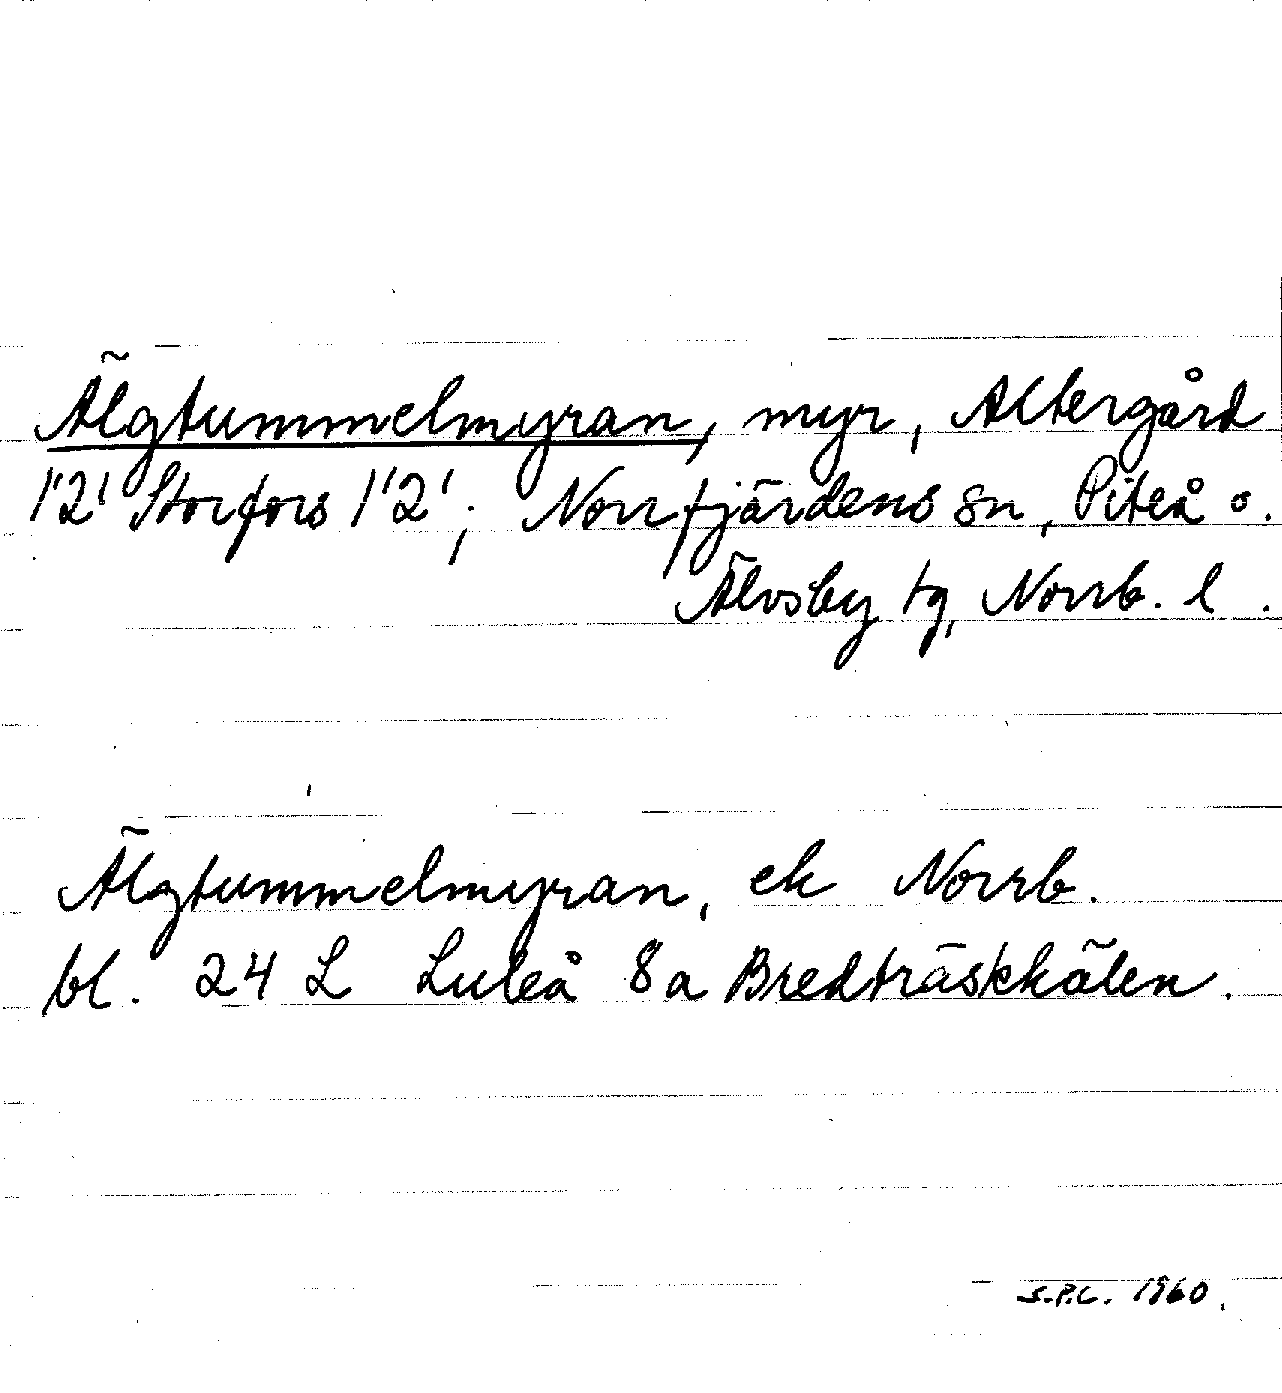 Älgtummelmyran, myr, Altergård
1'2' Storfors 1'2'; Norrfjärdens sn, Piteå o.
Älvsby tg, Norrb. l.
Älgtummelmyran, ek Norrb.
bl. 24 L Luleå 8a Bredträskkälen.
S.P.C. 1960.